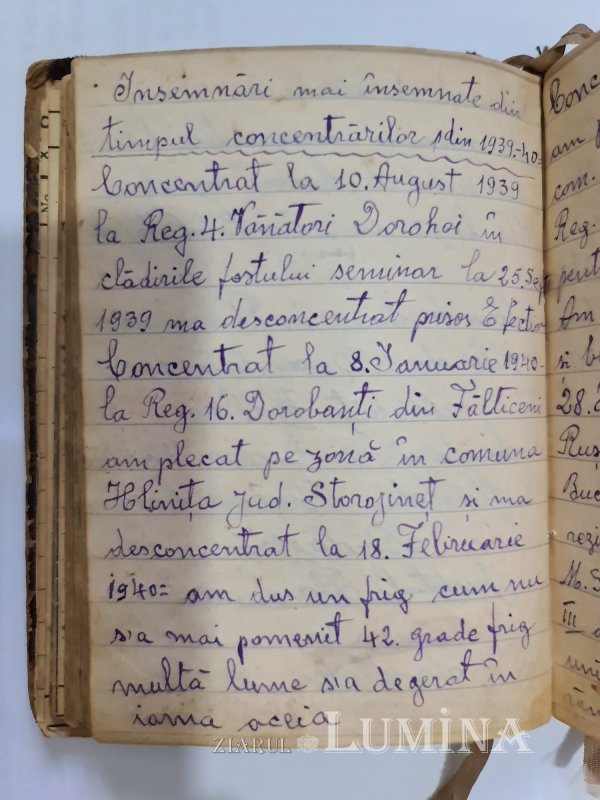 Insemnări mai însemnate din
timpul concentrărilor, din 1939.-40=
Concentrat la 10. August 1939
la Reg. 4. Vănători Dorohoi în
clădirile fostului seminar la 25. Sept
1939 ma desconcentrat prisos Efectiv
Concentrat la 8. Ianuarie 1940-
la Reg. 16. Dorobanți din Fălticeni
am plecat pe zonă în comuna
Hlinița jud. Storojineț și ma
desconcentrat la 18. Februarie
1940= am dus un frig cum nu
s'a mai pomenit 42. grade frig
multă lume s'a degerat în
iarna aceia
Conc
am
com.
Reg.
pent
Am
și b
28.
Ruș
Buc
rezi
M. S
III
uni
răm
ZIARUL LUMINA